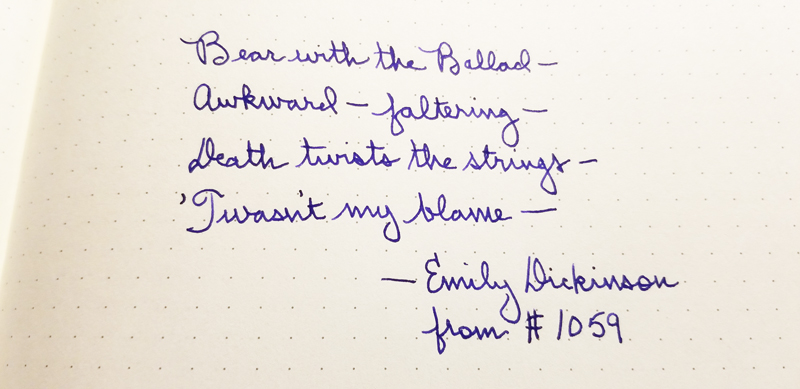 Bear with the Ballad —
Awkward — faltering —
Death twists the strings —
'Twasn't my blame —
— Emily Dickinson
from #1059